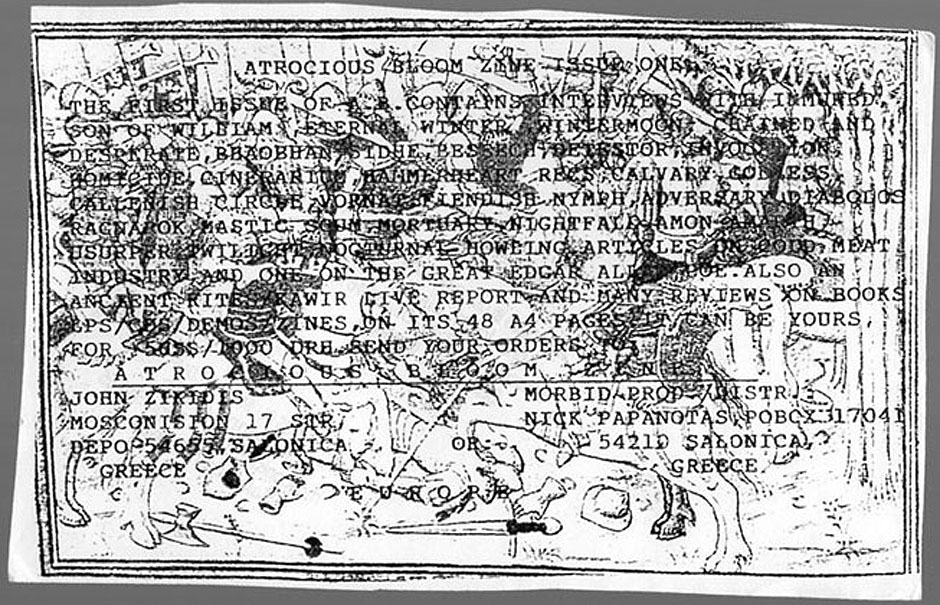 ATROCIOUS BLOOM ZINE ISSUE ONE
THE FIRST ISSUE OF A.B.CONTAINS INTERVIEWS WITH INMURED
SON OF WILLIAM ,ETERNAL WINTER, WINTERMOON, CHAINED AND
DESPERATE,BHAOBHAN SIDHE,BESEECH,DETESTOR,
HOMICIDE,CINERARIUM,HAMMERHEART RECS,CALVARY,GODLESS,
CALLENISH CIRCLE,VORNAT,FIENDISH NYMPH,ADVERSARY,DIABOLOS
RAGNAROK,MASTIC SCUM,MORTUARY,NIGHTFALL,AMON
USURPER,TWILIGHT,NOCTURNAL HOWLING ARTICLES ON GOOD MEAT
INDUSTRY AND ONE ON THE GREAT EDGAR ALLEN POE.ALSO AN
ANCIENT RITES/KAWIR LIVE REPORT AND MANY REVIEWS ON BOOKS
EPS/CDS/DEMOS/ZINES,ON ITS 48 A4 PAGES IT CAN BE YOURS,
FOR 1000 DRH SEND YOUR ORDERS TO:
ATROCIOUS BLOOM ZINE
JOHN ZIKIDIS
MOSCONISION 17 STR.
DEPO 54655,SALONICA
GREECE
OR
MORBID PROD./DISTR.
NICK PAPANOTAS,POBOX 17041
54210 SALONICA,
GREECE
EUROPE